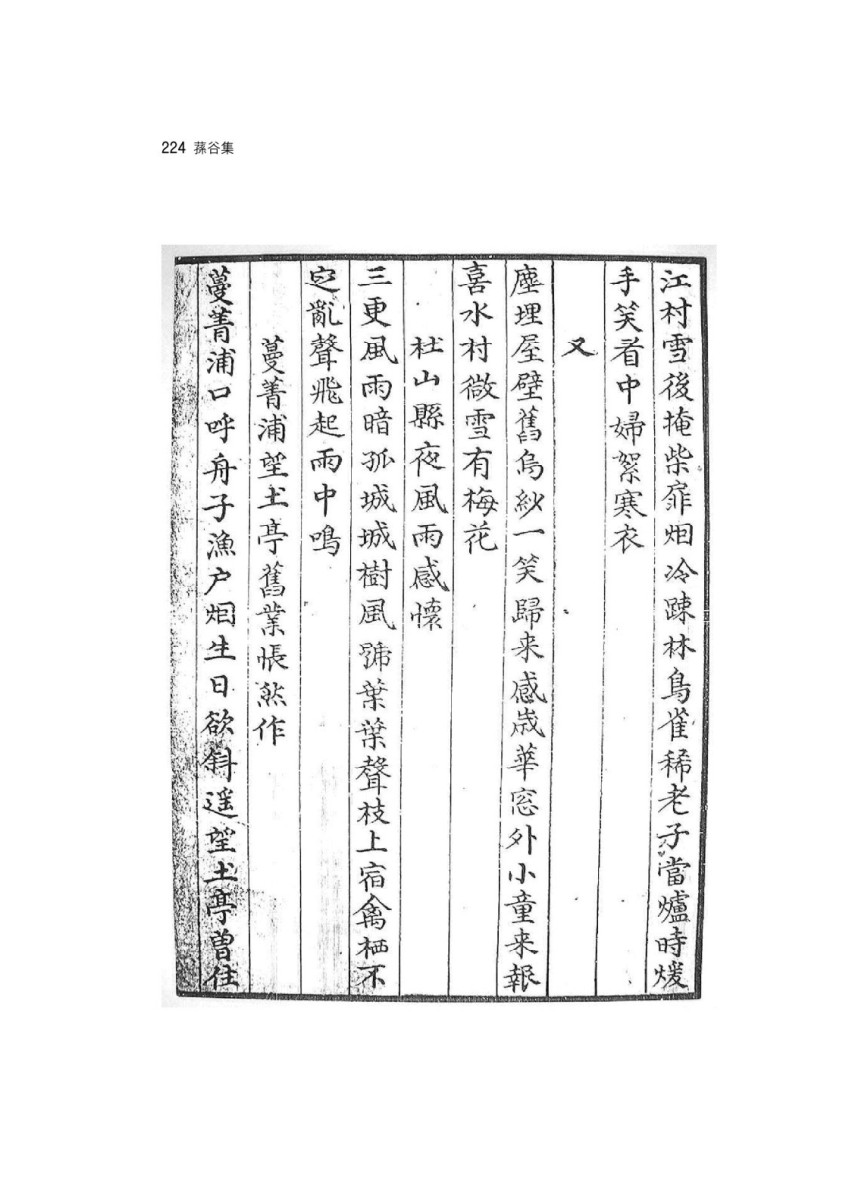 224 蓀谷集
江村雪後掩柴扉烟冷踈林鳥雀稀老子當爐時煖
手笑看中婦絮寒衣
又
塵埋屋壁舊烏紗一笑歸来感歳華窓外小童来報
喜水村微雪有梅花
杜山縣夜風雨感懷
三更風雨暗孤城城樹風號葉葉聲枝上宿禽栖不
定亂聲飛起雨中鳴
蔓菁浦望土亭舊業悵然作
蔓菁浦口呼舟子漁户烟生日欲斜遥望土亭曽住